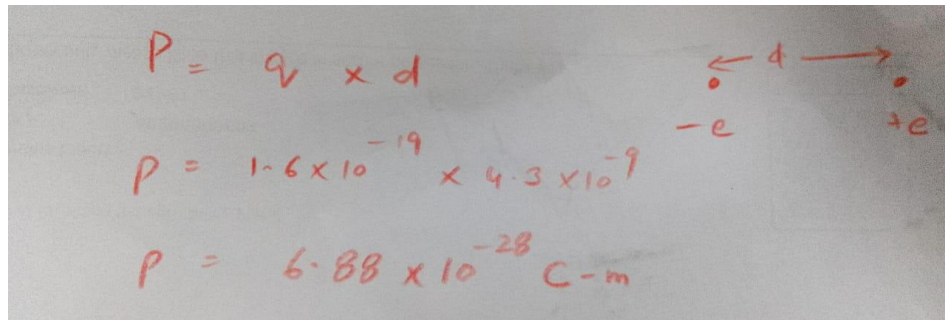 P = q x d
← d →
-e +e
p = 1.6 x 10⁻¹⁹ x 4.3 x 10⁻⁹
p = 6.88 x 10⁻²⁸ C-m